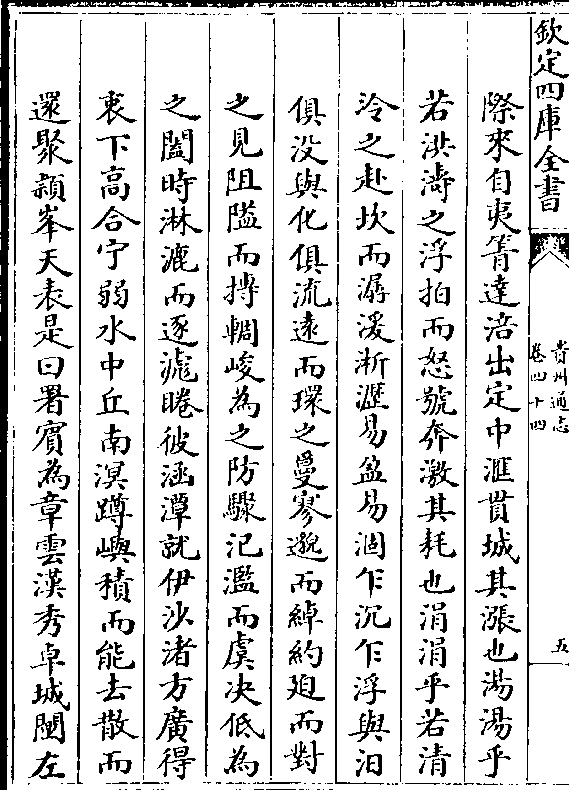 欽定四庫全書
貴州通志
卷四十四
五
際來自夷箐達涪出定中滙貫城其漲也湯湯乎
若洪濤之浮拍而怒號奔激其耗也涓涓乎若清
泠之赴坎而潺湲淅瀝易盈易涸乍沉乍浮與汨
俱没與化俱流遠而環之曼寥邈而綽約廹而對
之見阻隘而摶輖峻為之防驟氾濫而虞决低為
之闔時淋漉而逐滮睠彼涵潭就伊沙渚方廣得
衷下高合宁弱水中丘南溟蹲嶼積而能去散而
還聚頴峯天表是曰署賓為章雲漢秀卓城闉左